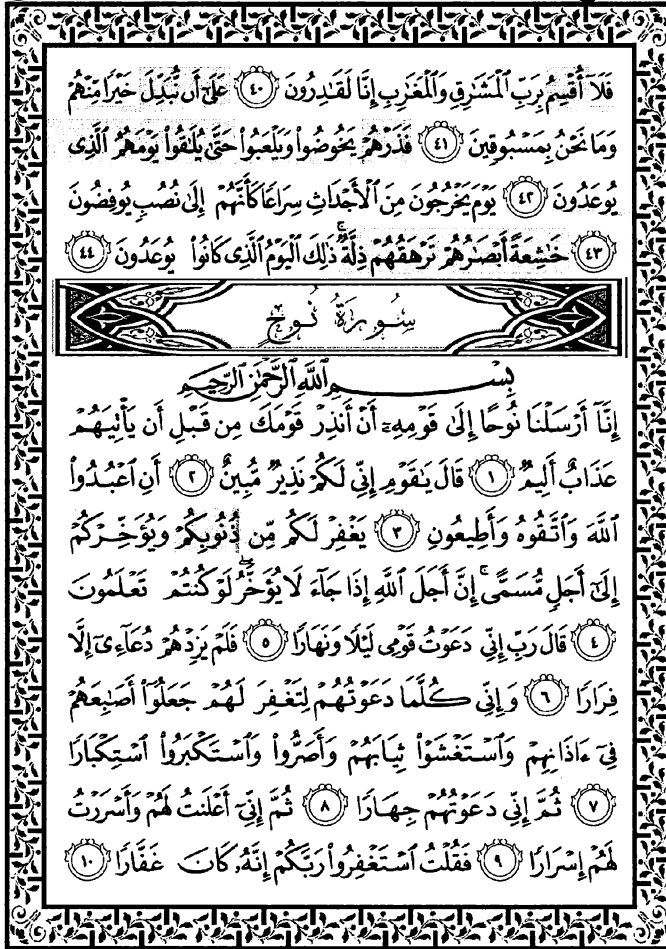 فَلَآ أُقْسِمُ بِرَبِّ ٱلْمَشَٰرِقِ وَٱلْمَغَٰرِبِ إِنَّا لَقَٰدِرُونَ ٤٠ عَلَىٰٓ أَن نُّبَدِّلَ خَيْرًا مِّنْهُمْ
وَمَا نَحْنُ بِمَسْبُوقِينَ ٤١ فَذَرْهُمْ يَخُوضُوا۟ وَيَلْعَبُوا۟ حَتَّىٰ يُلَٰقُوا۟ يَوْمَهُمُ ٱلَّذِى
يُوعَدُونَ ٤٢ يَوْمَ يَخْرُجُونَ مِنَ ٱلْأَجْدَاثِ سِرَاعًا كَأَنَّهُمْ إِلَىٰ نُصُبٍ يُوفِضُونَ
٤٣ خَٰشِعَةً أَبْصَٰرُهُمْ تَرْهَقُهُمْ ذِلَّةٌ ۚ ذَٰلِكَ ٱلْيَوْمُ ٱلَّذِى كَانُوا۟ يُوعَدُونَ ٤٤
سُورَةُ نُوحٍ
بِسْمِ ٱللَّهِ ٱلرَّحْمَٰنِ ٱلرَّحِيمِ
إِنَّآ أَرْسَلْنَا نُوحًا إِلَىٰ قَوْمِهِۦٓ أَنْ أَنذِرْ قَوْمَكَ مِن قَبْلِ أَن يَأْتِيَهُمْ
عَذَابٌ أَلِيمٌ ١ قَالَ يَٰقَوْمِ إِنِّى لَكُمْ نَذِيرٌ مُّبِينٌ ٢ أَنِ ٱعْبُدُوا۟
ٱللَّهَ وَٱتَّقُوهُ وَأَطِيعُونِ ٣ يَغْفِرْ لَكُم مِّن ذُنُوبِكُمْ وَيُؤَخِّرْكُمْ
إِلَىٰٓ أَجَلٍ مُّسَمًّى ۚ إِنَّ أَجَلَ ٱللَّهِ إِذَا جَآءَ لَا يُؤَخَّرُ ۖ لَوْ كُنتُمْ تَعْلَمُونَ
٤ قَالَ رَبِّ إِنِّى دَعَوْتُ قَوْمِى لَيْلًا وَنَهَارًا ٥ فَلَمْ يَزِدْهُمْ دُعَآءِىٓ إِلَّا
فِرَارًا ٦ وَإِنِّى كُلَّمَا دَعَوْتُهُمْ لِتَغْفِرَ لَهُمْ جَعَلُوٓا۟ أَصَٰبِعَهُمْ
فِىٓ ءَاذَانِهِمْ وَٱسْتَغْشَوْا۟ ثِيَابَهُمْ وَأَصَرُّوا۟ وَٱسْتَكْبَرُوا۟ ٱسْتِكْبَارًا
٧ ثُمَّ إِنِّى دَعَوْتُهُمْ جِهَارًا ٨ ثُمَّ إِنِّىٓ أَعْلَنتُ لَهُمْ وَأَسْرَرْتُ
لَهُمْ إِسْرَارًا ٩ فَقُلْتُ ٱسْتَغْفِرُوا۟ رَبَّكُمْ إِنَّهُۥ كَانَ غَفَّارًا ١٠